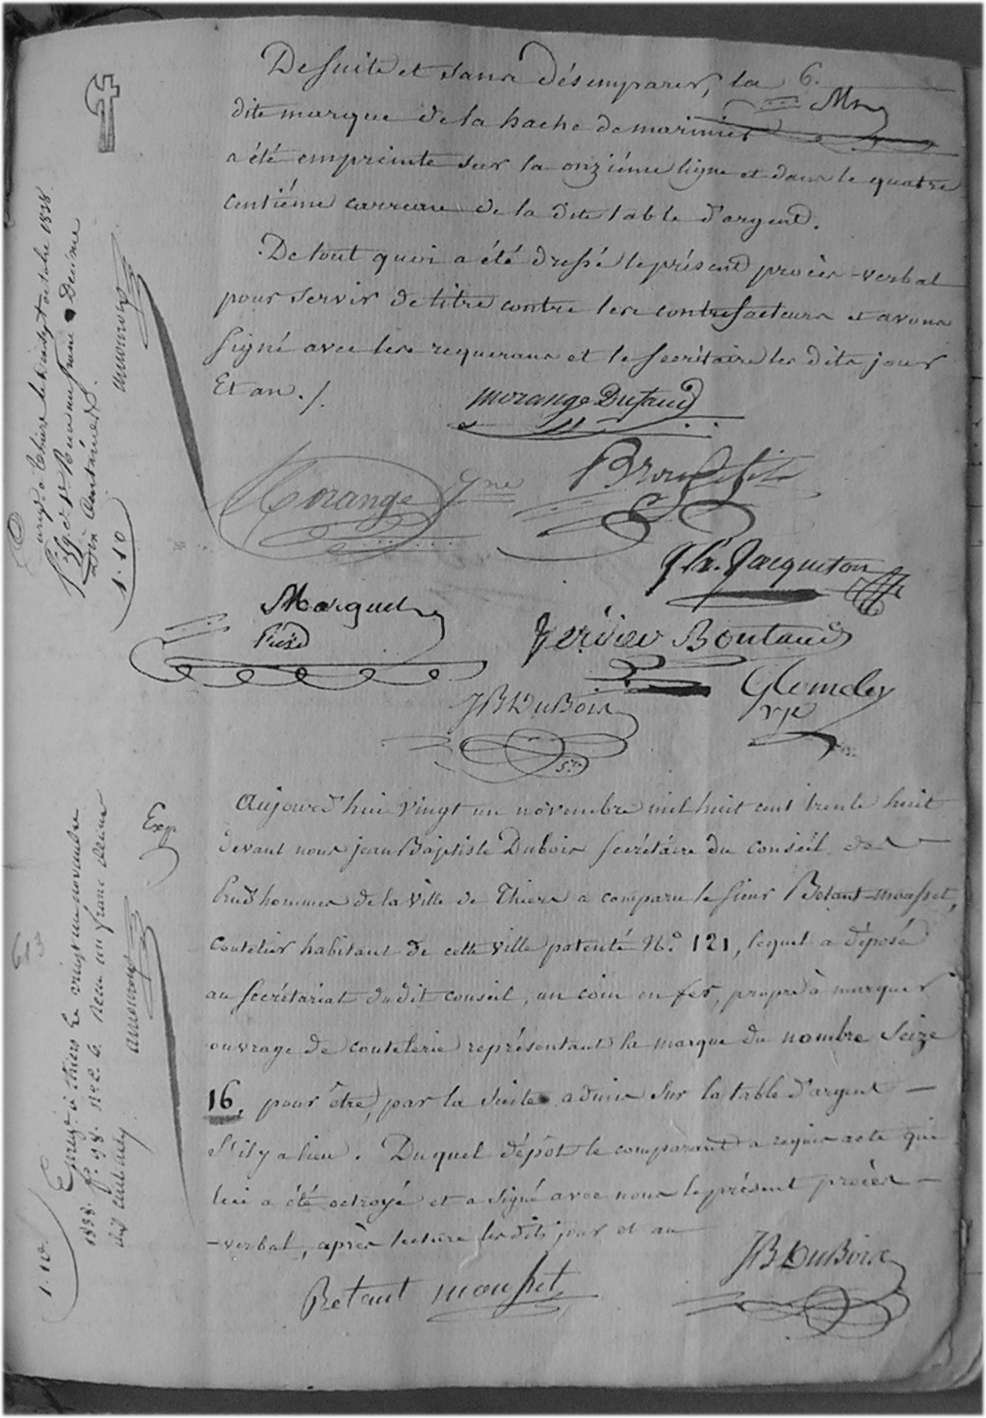 De suite et sans désemparer, la
6.
dite marque de la hache de marinier
a été empreinte sur la onziéme ligne et dans le quatre
centiéme carreau de la dite table d'argent.
De tout quoi a été dressé le présent procès-verbal
pour servir de titre contre les contrefacteurs et avons
signé avec les requerans et le secrétaire les dits jour
Et an ./.
Morange Dufaud
Morange
Brou fils
Jacqueton
Marquet
Boutaud
JB DuBois
Aujourd'hui vingt un novembre mil huit cent trente huit
devant nous jean Baptiste Dubois secrétaire du conseil des
Prud'hommes de la ville de Thiers a comparu le sieur Betant-mousset,
Coutelier habitant de cette ville patenté N.o 121, lequel a déposé
au secrétariat du dit conseil, un coin en fer, propre à marquer
ouvrage de coutelerie représentant la marque du nombre seize
16, pour être, par la suite admis sur la table d'argent
s'il y a lieu. Du quel dépôt le comparant a requis acte qui
lui a été octroyé et a signé avec nous le présent procès-
-verbal, après lecture les dits jour et an
JB DuBois
Betant mousset
à Thiers le vingt sept octobre 1838
un franc Décime
Dix centimes
1.10
Exp
à thiers le vingt un novembre
1838. f.o 98. Reçu un franc décime
dix centimes
1.10.